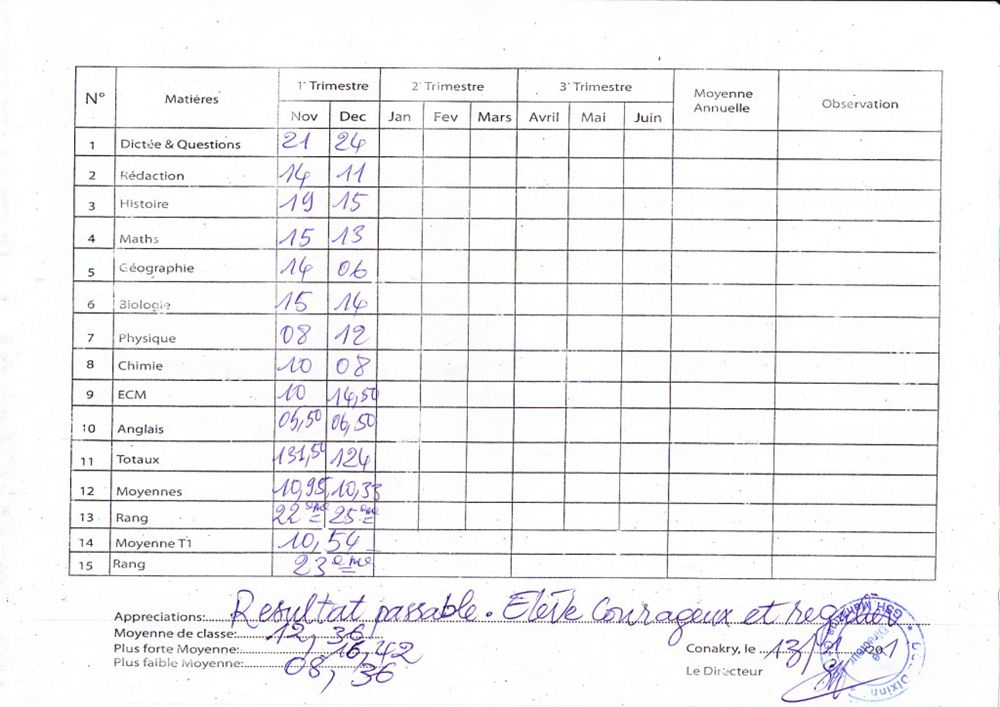 N° Matières 1° Trimestre 2° Trimestre 3° Trimestre Moyenne Annuelle Observation
Nov Dec Jan Fev Mars Avril Mai Juin
1 Dictée & Questions 21 24
2 Rédaction 14 11
3 Histoire 19 15
4 Maths 15 13
5 Géographie 14 06
6 Biologie 15 14
7 Physique 08 12
8 Chimie 10 08
9 ECM 10 14,50
10 Anglais 05,50 06,50
11 Totaux 131,50 124
12 Moyennes 10,95 10,33
13 Rang 22ème 25ème
14 Moyenne T1 10,54
15 Rang 23ème
Appreciations: Resultat passable. Elève Courageux et régulier
Moyenne de classe: 12,36
Plus forte Moyenne: 16,42
Plus faible Moyenne: 08,36
Conakry, le 13/1 201
Le Directeur
Le Directeur